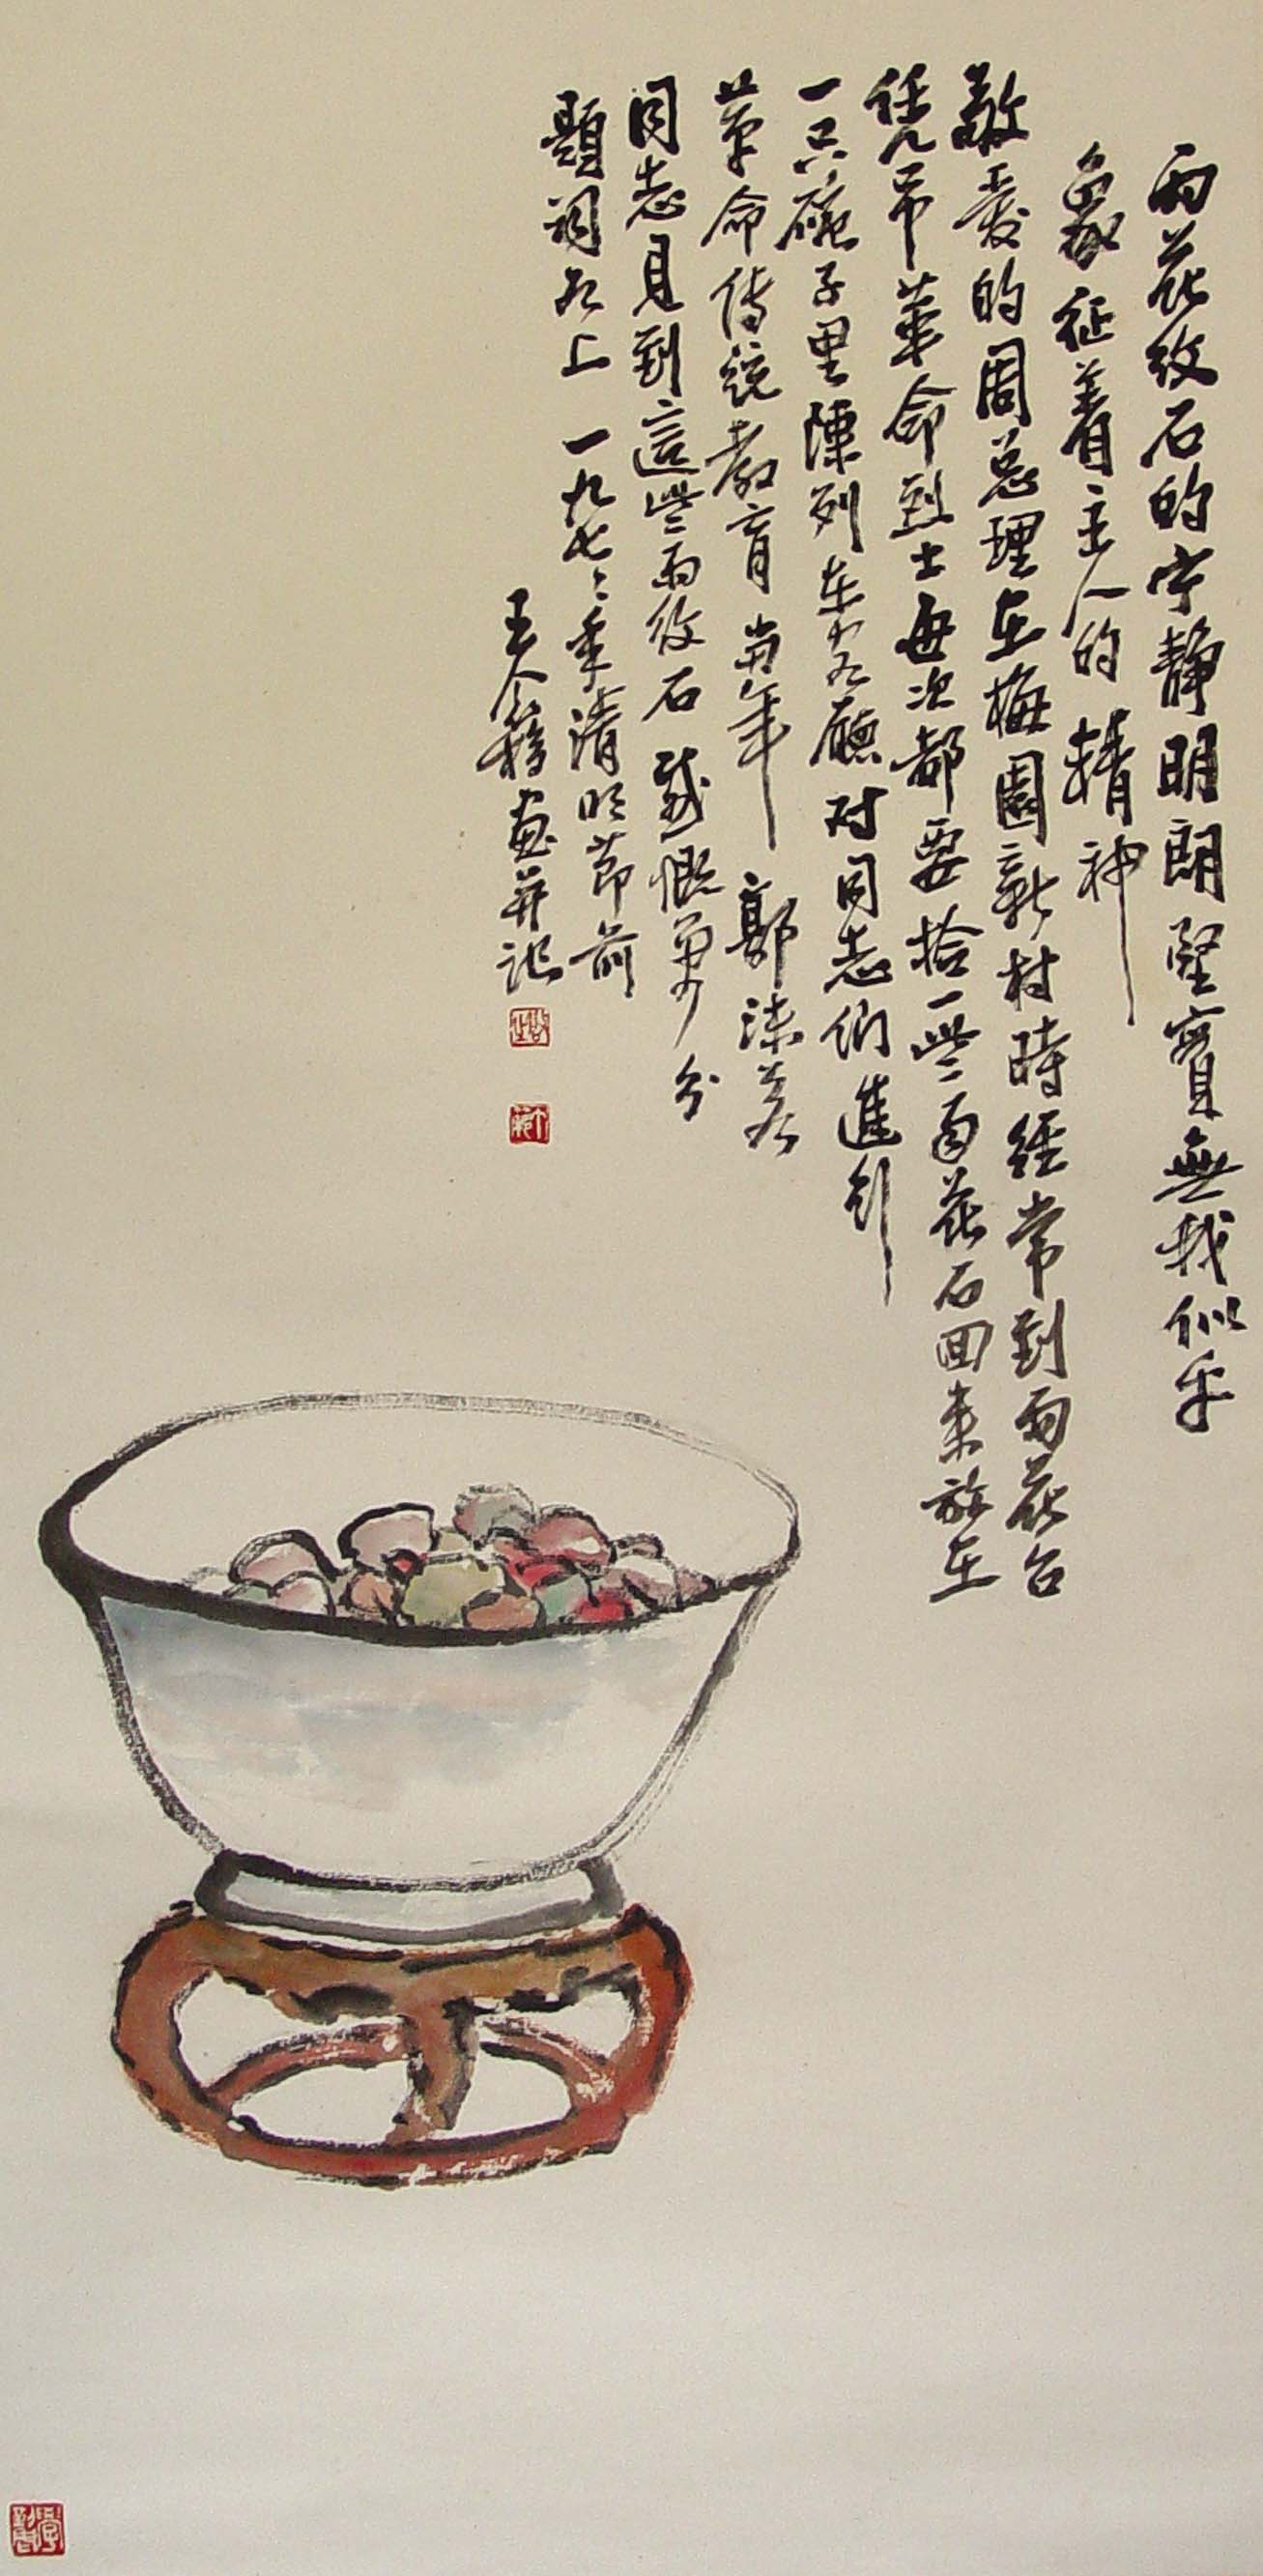 雨花紋石的宁静明朗堅實無我似乎
象征着主人的精神
敬爱的周总理在梅園新村時经常到雨花台
凭吊革命烈士每次都要拾一些雨花石回来放在
一只碗子里陳列在客廳对同志们進行
革命传统教育当年郭沫若
同志見到這些雨紋石感慨万分
題詞如上一九七七年清明節前
王个簃画并记